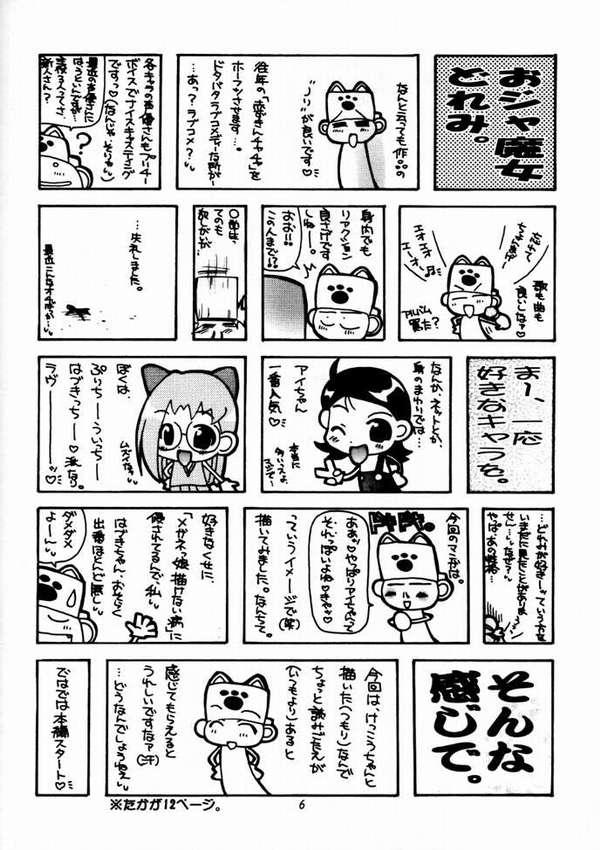 おジャ魔女
どれみ。
なんと云っても作品の
ノリが良いです♡
往年の「赤ずきんチャチャ」を
ホーフツさせます…。
ドタバタラブコメディーな所が…
…あっ？ラブコメ？
各キャラの声優さんもプリチー
ボイスでナイスキャスティング
ですっっ(なんじゃそりゃ)
最近の声優さんに
はうといんですが…
主役3人ってさ、
新人さん？
？
歌も曲も
良いしなァ♡
アルバム
買った？
身内でも
リアクション
良さげです
しねー。
おお!!
この人まで!!
…失礼しました。
まー、一応
好きなキャラを。
なんか、ネットとか
身のまわりでは…
アイちゃん
一番人気♡
本当に
多いえよ
ぼくは、
ぷりちーーういっちーー
はづきっちーー♡派なり。
ラヴーー♡
今回のマンガは。
ドキドキ。
あぁッ♡やっぱりアイちゃんって
そんっぽいよね♡きゃっ♡
っていうイメージで(笑)
描いてみました。なんちって。
好きなくせに、
「メガネっ娘描けない病」に
侵されてるんで、私♡
はづきちゃん、おそらく
出番ほとんど無し♡
ダメダメ
よーーん♡
そんな
感じで。
今回は、けっこうちゃんと
描いた(つもり)なんで
ちょっと読みごたえが
(いつもより)あると
感じてもらえると
うれしいですなァ(汗)
…どうなんでしょうねえ♡
ではでは本編スタート♡
※たかが12ページ。
6